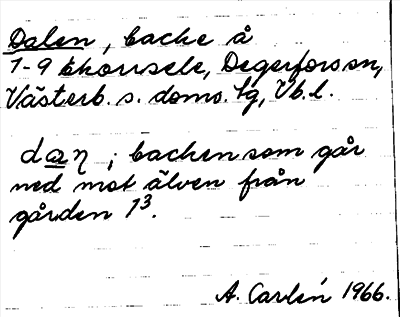 Dalen, backe å
1-9 Ekorrsele, Degerfors sn,
Västerb. s. doms. lg, Vb. l.
daη ; backen som går
ned mot älven från
gården 1³.
A. Carlén 1966.